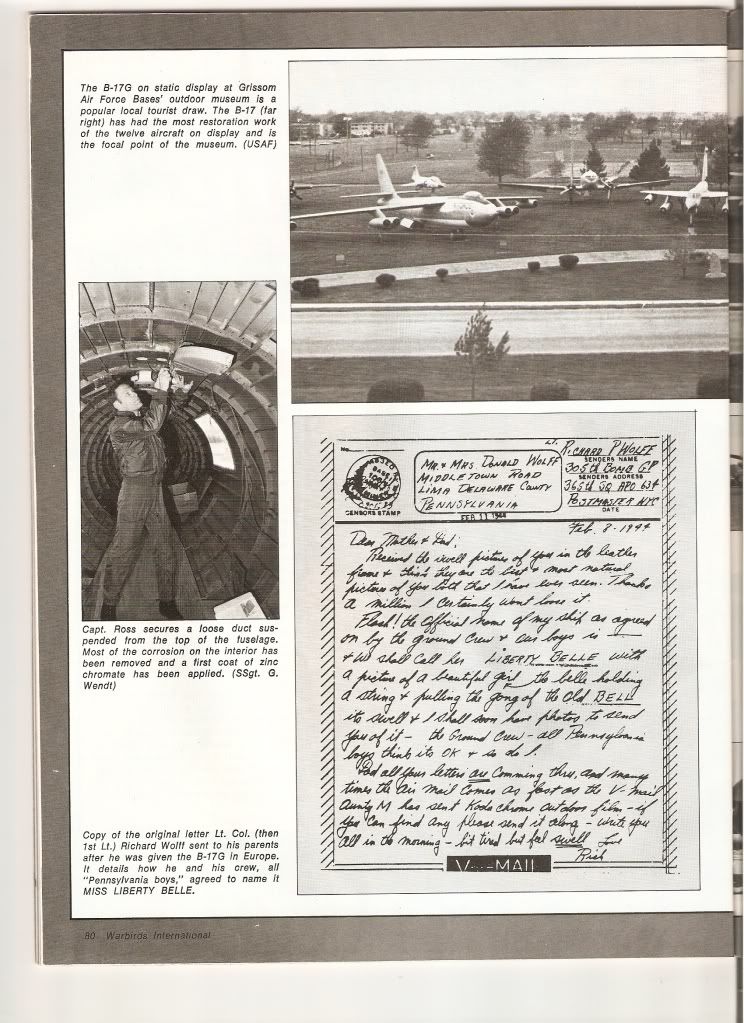 The B-17G on static display at Grissom
Air Force Bases' outdoor museum is a
popular local tourist draw. The B-17 (far
right) has had the most restoration work
of the twelve aircraft on display and is
the focal point of the museum. (USAF)
Capt. Ross secures a loose duct sus-
pended from the top of the fuselage.
Most of the corrosion on the interior has
been removed and a first coat of zinc
chromate has been applied. (SSgt. G.
Wendt)
Copy of the original letter Lt. Col. (then
1st Lt.) Richard Wolff sent to his parents
after he was given the B-17G in Europe.
It details how he and his crew, all
"Pennsylvania boys," agreed to name it
MISS LIBERTY BELLE.
No.
CENSORS STAMP
MR. & MRS. DONALD WOLFF
MIDDLETOWN ROAD
LIMA DELAWARE COUNTY
PENNSYLVANIA
FEB 11
LT.
RICHARD P WOLFF
SENDERS NAME
305th BOMB GP
SENDERS ADDRESS
365th SQ APO 634
POSTMASTER NYC
DATE
Feb. 8 - 1944
Dear Mother & Dad;
Received the swell picture of you in the leather
frame & think they are the best & most natural
pictures of you both that I have ever seen. Thanks
a million I certainly wont loose it.
Flash! the Official name of my ship as agreed
on by the ground crew & our boys is —
& we shall call her LIBERTY BELLE with
a picture of a beautiful girl, the belle holding
a string & pulling the gong of the Old BELL
its swell & I shall soon have photos to send
you of it - the Ground Crew - all Pennsylvania
boys think its OK & so do I.
Dad all your letters are Comming thru, and many
times the Air Mail Comes as fast as the V-Mail
Aunty M has sent Koda chrome outdoor film - if
you can find any please send it along - write you
all in the morning - bit tired but feel swell Love
Rich
V-MAIL
80 Warbirds International